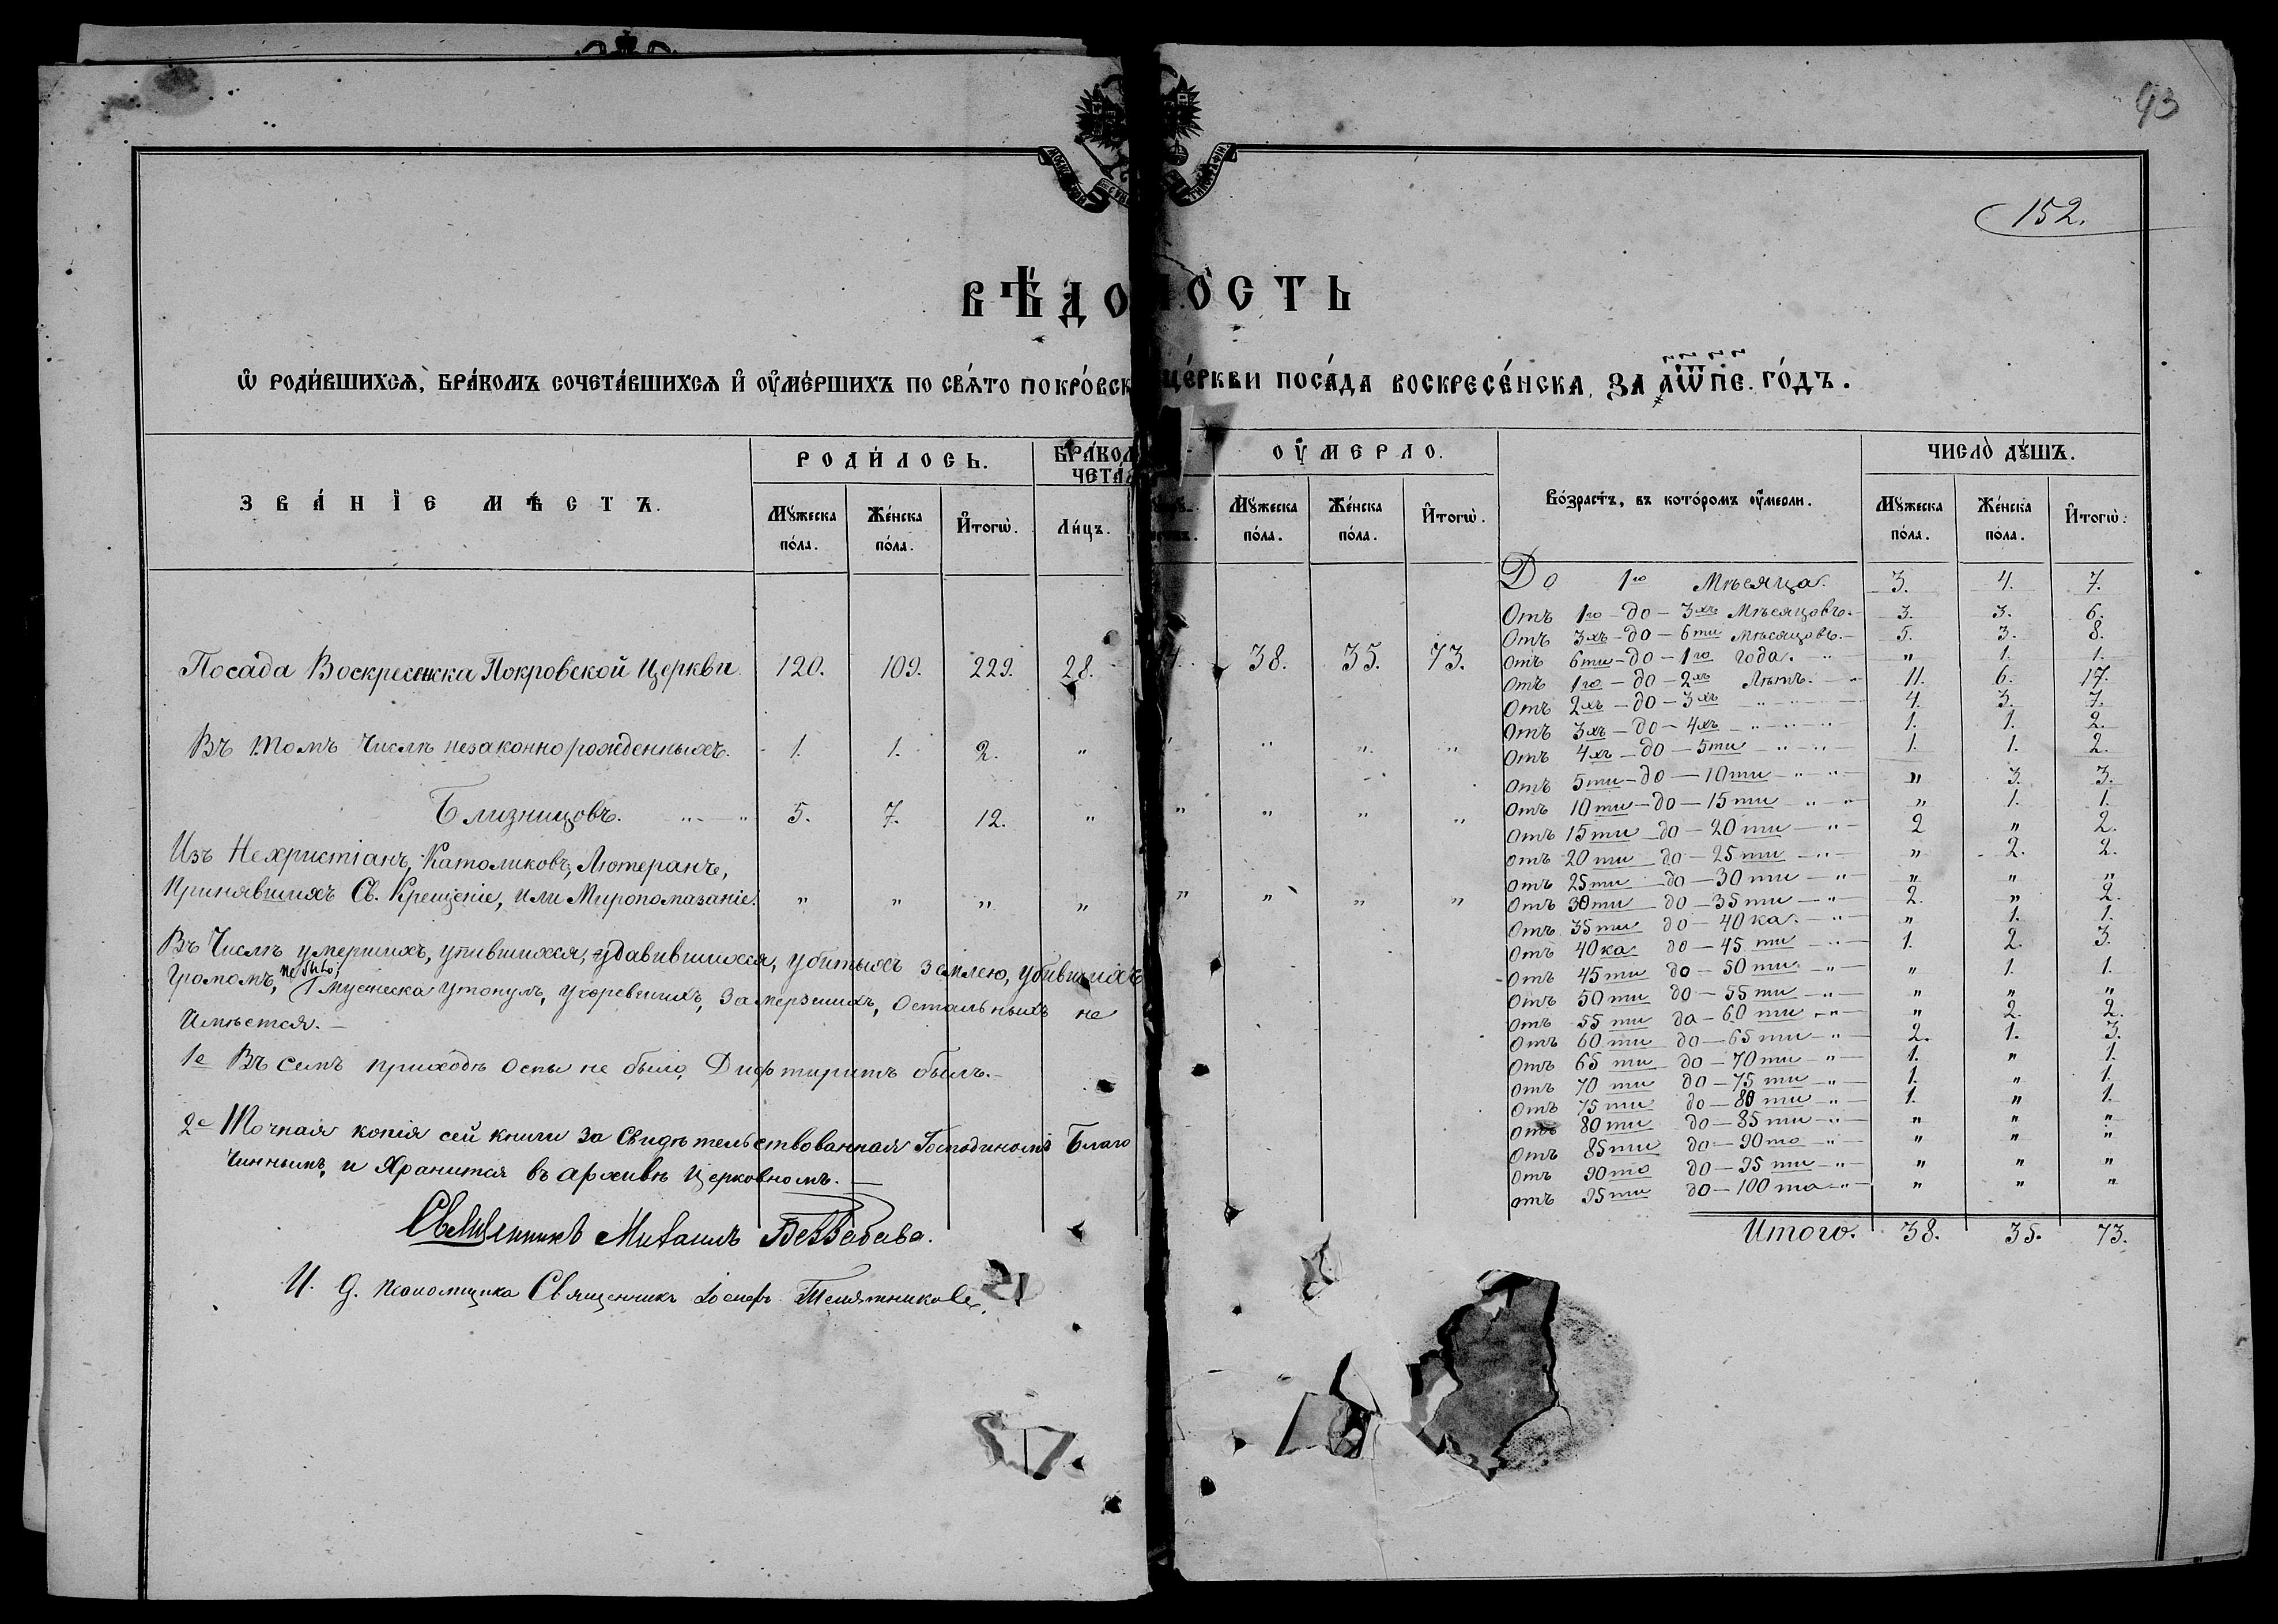 93
152.
ВѢДО ОСТЬ
Ѡ РОДИ́ВШИХСѦ, БРА́КОМЪ СОЧЕТА́ВШИХСѦ И҆ ОУ҆МЕ́РШИХЪ ПО СВѦ́ТО ПОКРО́ВСК ЦЕ́РКВИ ПОСА́ДА ВОСКРЕСЕ́НСКА, ЗА ҂АѾПЕ. ГО́ДЪ.
ЗВА́НІЕ МѢ́СТЪ.
РОДИ́ЛОСЬ.
Мꙋ́жеска по́ла. Же́нска по́ла. И҆тогѡ̀.
БРА́КОМ ЧЕТА́
Ли́цъ.
ОУ҆МЕРЛО.
Мꙋ́жеска по́ла. Же́нска по́ла. И҆тогѡ̀.
Во́зрастъ, въ кото́ромъ оу҆мерли.
ЧИСЛО̀ ДꙊ́ШЪ.
Мꙋ́жеска по́ла. Же́нска по́ла. И҆тогѡ̀.
Посада Воскресенска Покровской Церкви 120. 109. 229. 28. 38. 35. 73.
Въ томъ Числѣ незаконно рожденныхъ. 1. 1. 2. " " " "
Близнецовъ. 5. 7. 12. " " " " "
Изъ Нехристіанъ, Католиковъ, Лютеранъ,
Принявшихъ Св. Крещеніе, или Миропомазаніе. " " " " " " " "
Въ Числѣ умершихъ, упившихся, удавившихся, убитыхъ землею, убившихъ
Громомъ, не было, 1 Мужеска утонулъ, угоревшихъ, замерзшихъ, остальныхъ не
Имѣется.
1е Въ семъ приходѣ оспы не было, Дифтиритъ былъ.
2е Точная копія сей книги за Свидѣтельствованная Господиномъ Благо
Чиннымъ, и Хранится въ архивѣ Церковномъ.
Священникъ Михаилъ
И. д. Священникъ
До 1го Мѣсяца. 3. 4. 7.
Отъ 1го – до – 3хъ Мѣсяцовъ. 3. 3. 6.
Отъ 3хъ – до – 6ти Мѣсяцовъ. 5. 3. 8.
Отъ 6ти – до – 1го Года. " 1. 1.
Отъ 1го – до – 2хъ Лѣтъ. 11. 6. 17.
Отъ 2хъ – до – 3хъ 4. 3. 7.
Отъ 3хъ – до – 4хъ 1. 1. 2.
Отъ 4хъ – до – 5ти 1. 1. 2.
Отъ 5ти – до – 10ти " 3. 3.
Отъ 10ти – до – 15ти " 1. 1.
Отъ 15ти до – 20ти 2 " 2.
Отъ 20ти до – 25ти " 2. 2.
Отъ 25ти до – 30ти " " "
Отъ 30ти до – 35ти 2. " 2.
Отъ 35ти до – 40ка. " 1. 1.
Отъ 40ка до – 45ти 1. 2. 3.
Отъ 45ти до – 50ти " 1. 1.
Отъ 50ти до – 55ти " " "
Отъ 55ти до – 60ти " 2. 2.
Отъ 60ти до – 65ти 2. 1. 3.
Отъ 65ти до – 70ти 1. " 1.
Отъ 70ти до – 75ти 1. " 1.
Отъ 75ти до – 80ти 1. " 1.
Отъ 80ти до – 85ти " " "
Отъ 85ти до – 90то " " "
Отъ 90то до – 95ти " " "
Отъ 95ти до – 100та " " "
Итого. 38. 35. 73.